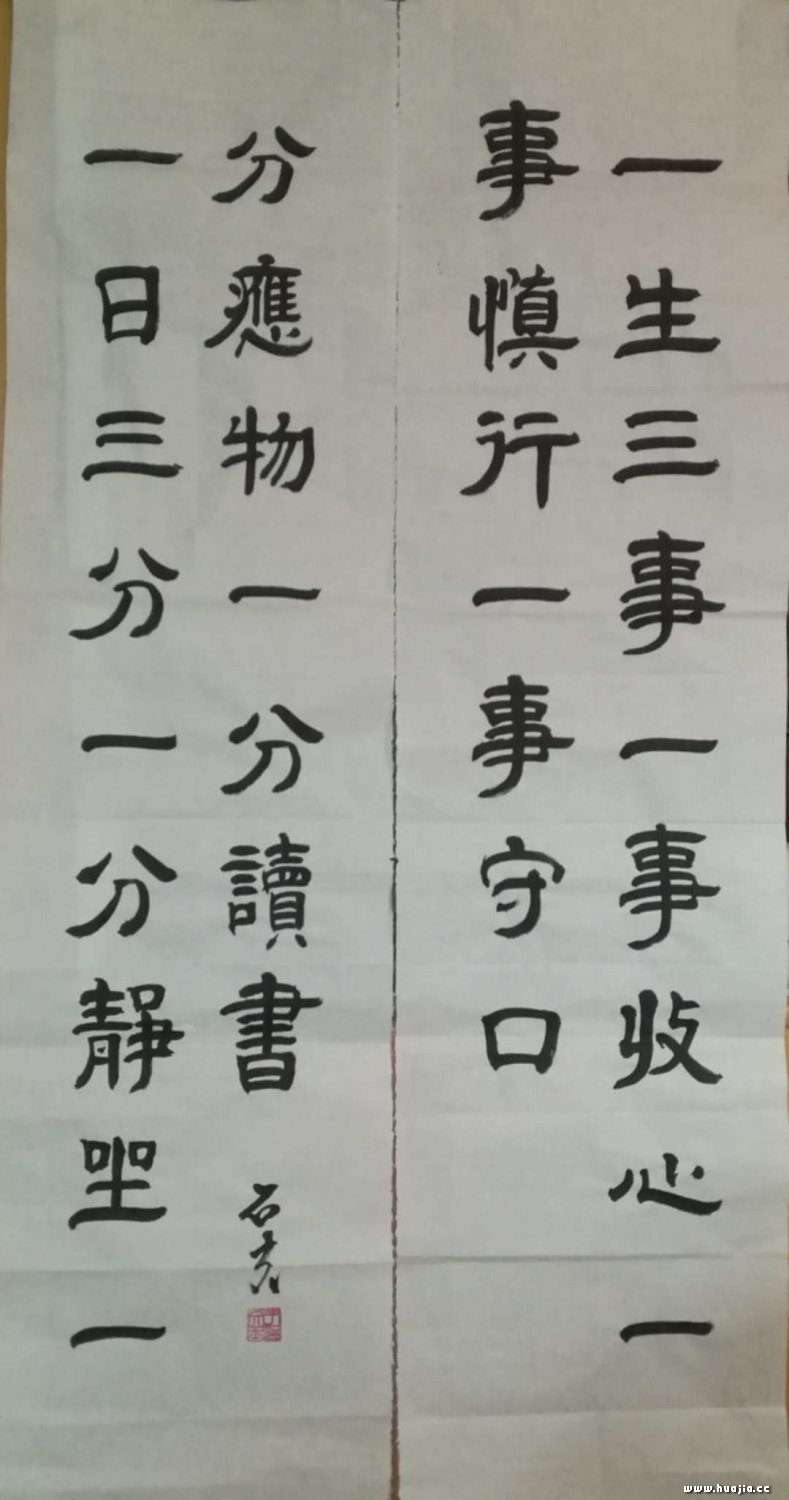 一生三事一事收心一
事慎行一事守口
一日三分一分靜坐一
分應物一分讀書
石
www.huajia.cc